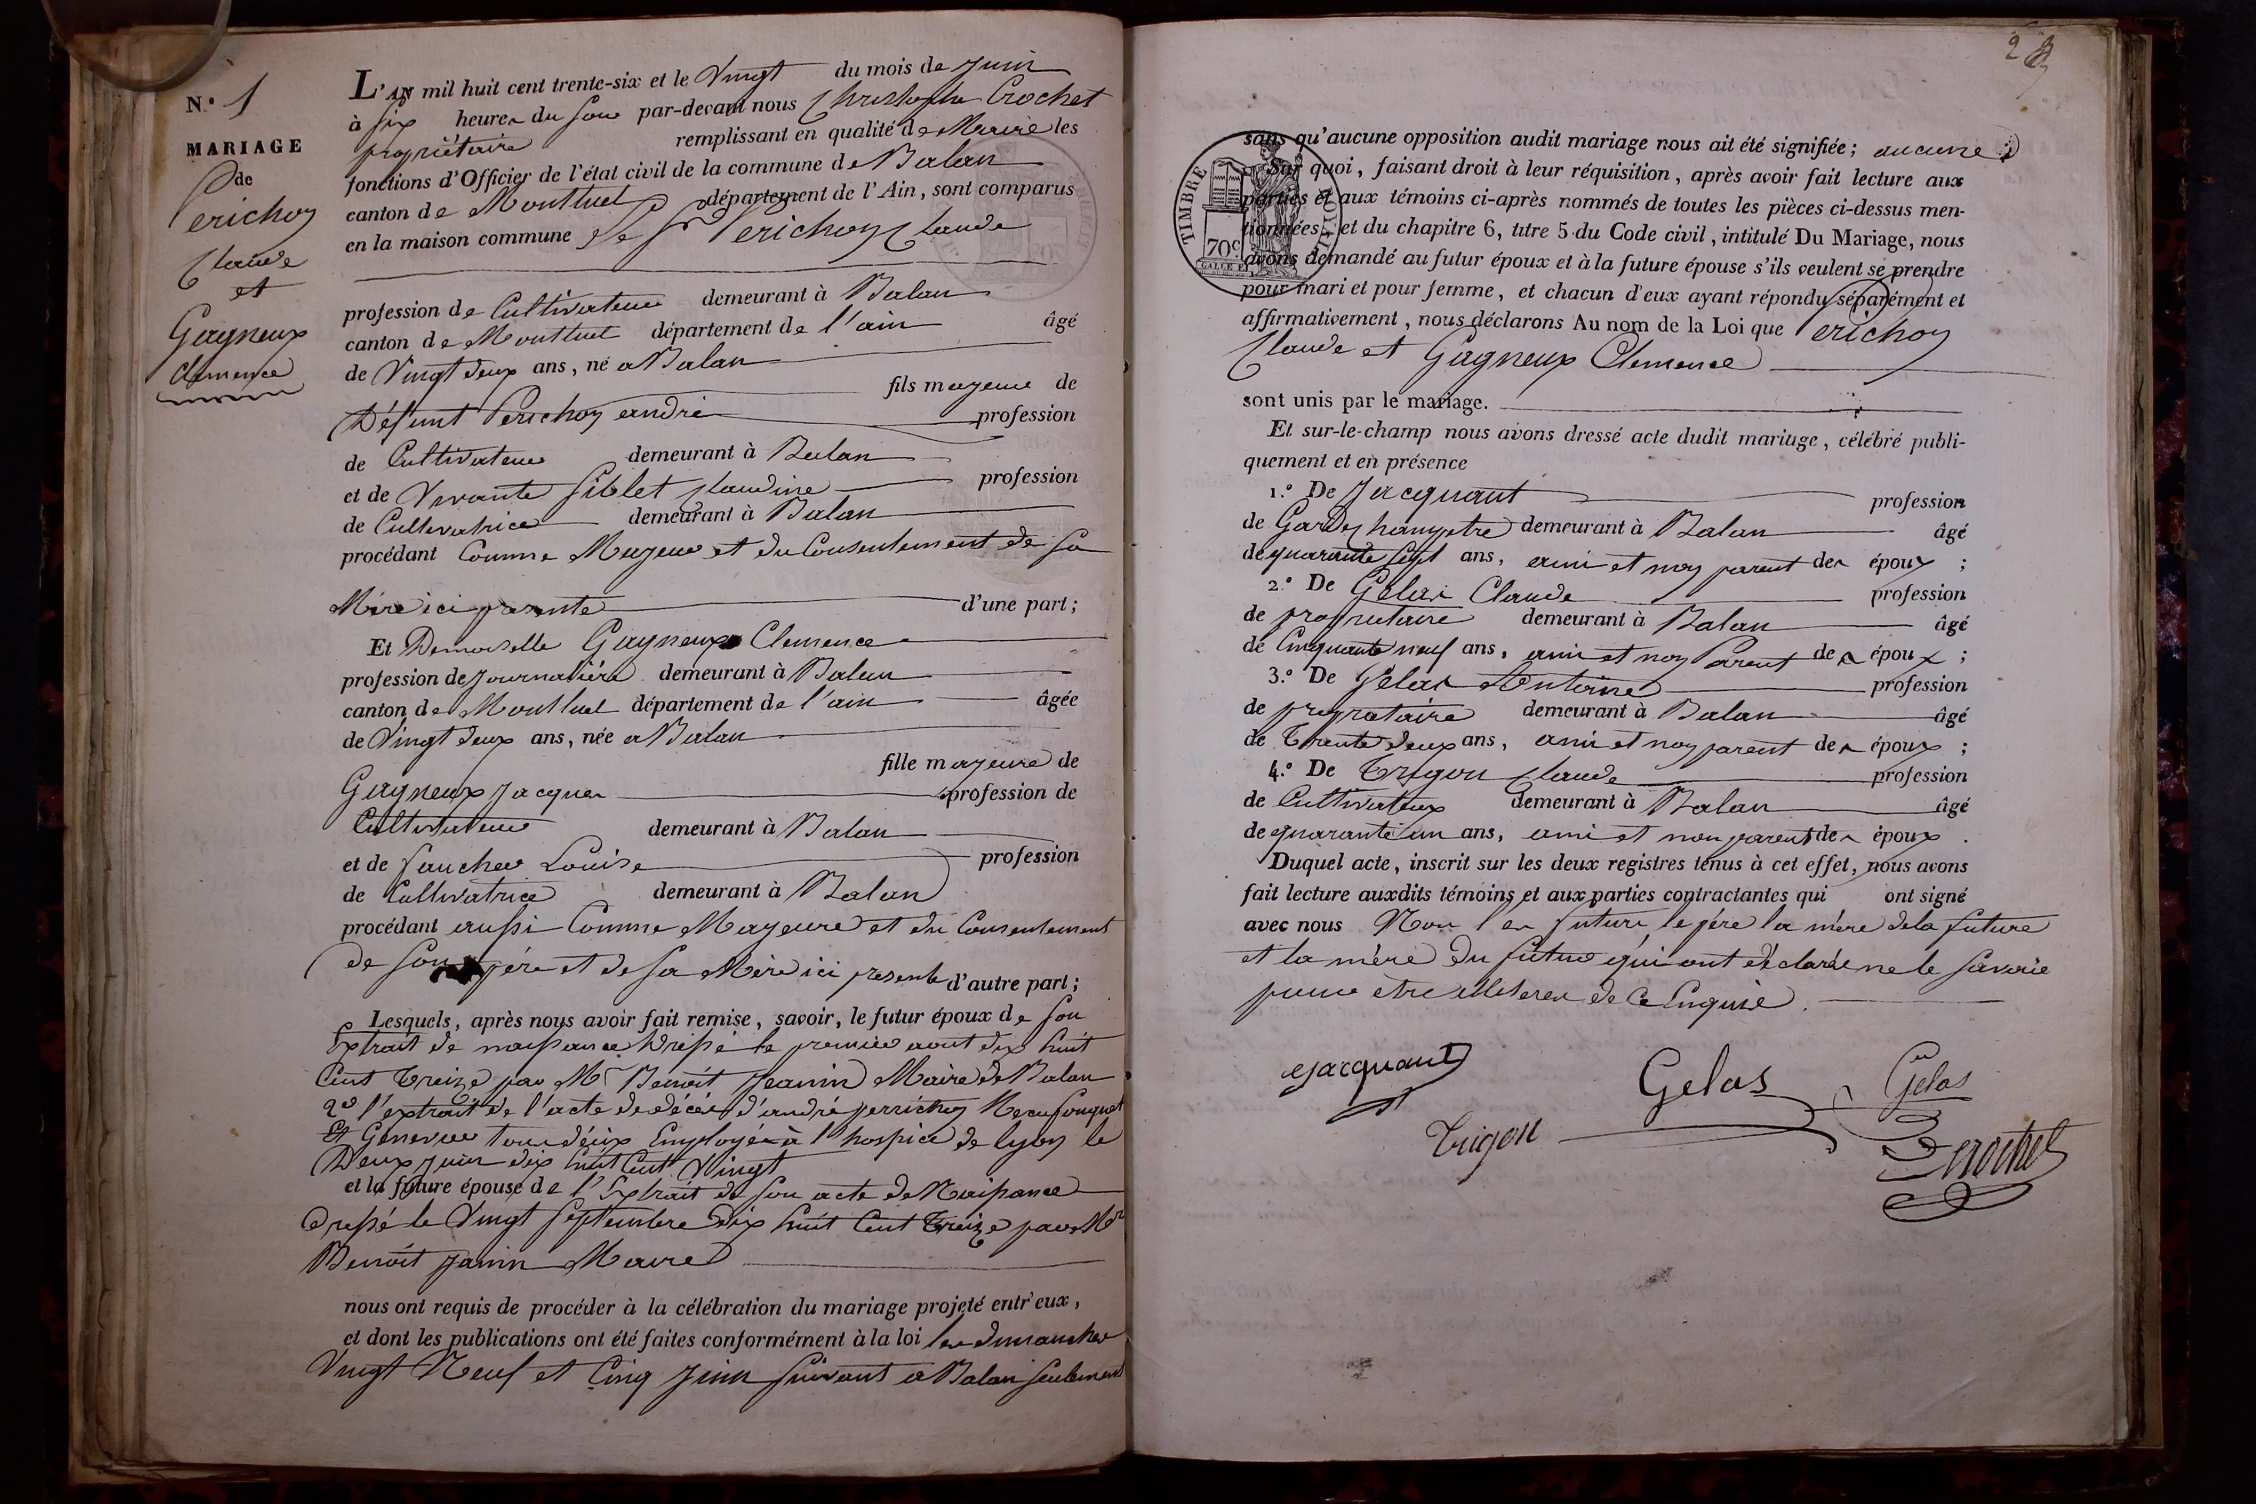 N.° 1
MARIAGE
de
Perichon
Claude
et
Gagneux
Clemence
L'AN mil huit cent trente-six et le Vingt du mois de Juin
à six heures du soir par-devant nous Christophe Crochet
propriétaire remplissant en qualité de Maire les
fonctions d'Officier de l'état civil de la commune de Balan
canton de Montluel département de l'Ain, sont comparus
en la maison commune le Sr Perichon Claude
profession de Cultivateur demeurant à Balan
canton de Montluel département de l'ain âgé
de Vingt deux ans, né a Balan
fils mayeur de
Défunt Perichon andré profession
de Cultivateur demeurant à Balan
et de Vivante Giblet Claudine profession
de Cultivatrice demeurant à Balan
procédant Comme Mayeur et du Consentement de sa
Mère ici presente d'une part;
Et Demoiselle Gagneux Clemence
profession de Journalière demeurant à Balan
canton de Montluel département de l'ain âgée
de Vingt deux ans, née a Balan
fille mayeure de
Gagneux Jacques profession de
Cultivateur demeurant à Balan
et de Faucher Louise profession
de Cultivatrice demeurant à Balan
procédant aussi Comme Mayeure et du Consentement
de son père et de sa Mère ici presente d'autre part;
Lesquels, après nous avoir fait remise, savoir, le futur époux de son
Extrait de naissance Dressé le premier aout dix huit
Cent Treize par Mr Benoit Jeanin Maire de Balan
2° l'extrait de l'acte de décès d'andré perrichon
Et Genevue tous deux Employés à l'hospice de lyon le
Deux juin dix huit Cent Vingt
et la future épouse de l'Extrait de son acte de Naissance
Dressé le Vingt Septembre Dix huit Cent Treize par Mr
Benoit Janin Maire
nous ont requis de procéder à la célébration du mariage projeté entr'eux,
et dont les publications ont été faites conformément à la loi les dimanches
Vingt Neuf et Cinq Juin suivant a Balan seulement
2
TIMBRE ROYAL
70c
sans qu'aucune opposition audit mariage nous ait été signifiée; aucune
Sur quoi, faisant droit à leur réquisition, après avoir fait lecture aux
parties et aux témoins ci-après nommés de toutes les pièces ci-dessus men-
tionnées, et du chapitre 6, titre 5 du Code civil, intitulé Du Mariage, nous
avons demandé au futur époux et à la future épouse s'ils veulent se prendre
pour mari et pour femme, et chacun d'eux ayant répondu séparément et
affirmativement, nous déclarons Au nom de la Loi que Perichon
Claude et Gagneux Clemence
sont unis par le mariage.
Et sur-le-champ nous avons dressé acte dudit mariage, célébré publi-
quement et en présence
1.° De Jacquant profession
de Garde champetre demeurant à Balan âgé
de quarante sept ans, ami et non parent des époux;
2.° De Gelas Claude profession
de proprietaire demeurant à Balan âgé
de Cinquante neuf ans, ami et non Parent des époux;
3.° De Gelas Antoine profession
de proprietaire demeurant à Balan âgé
de Trente deux ans, ami et non parent des époux;
4.° De Trigon Claude profession
de Cultivateur demeurant à Balan âgé
de quarante un ans, ami et non parent des époux.
Duquel acte, inscrit sur les deux registres tenus à cet effet, nous avons
fait lecture auxdits témoins et aux parties contractantes qui ont signé
avec nous Non les futurs, le père la mère de la future
et la mère du futur qui ont déclaré ne le savoir
pour etre illeteres de ce Enquis.
Jacquant
Gelas
Gelas
Trigon
Crochet